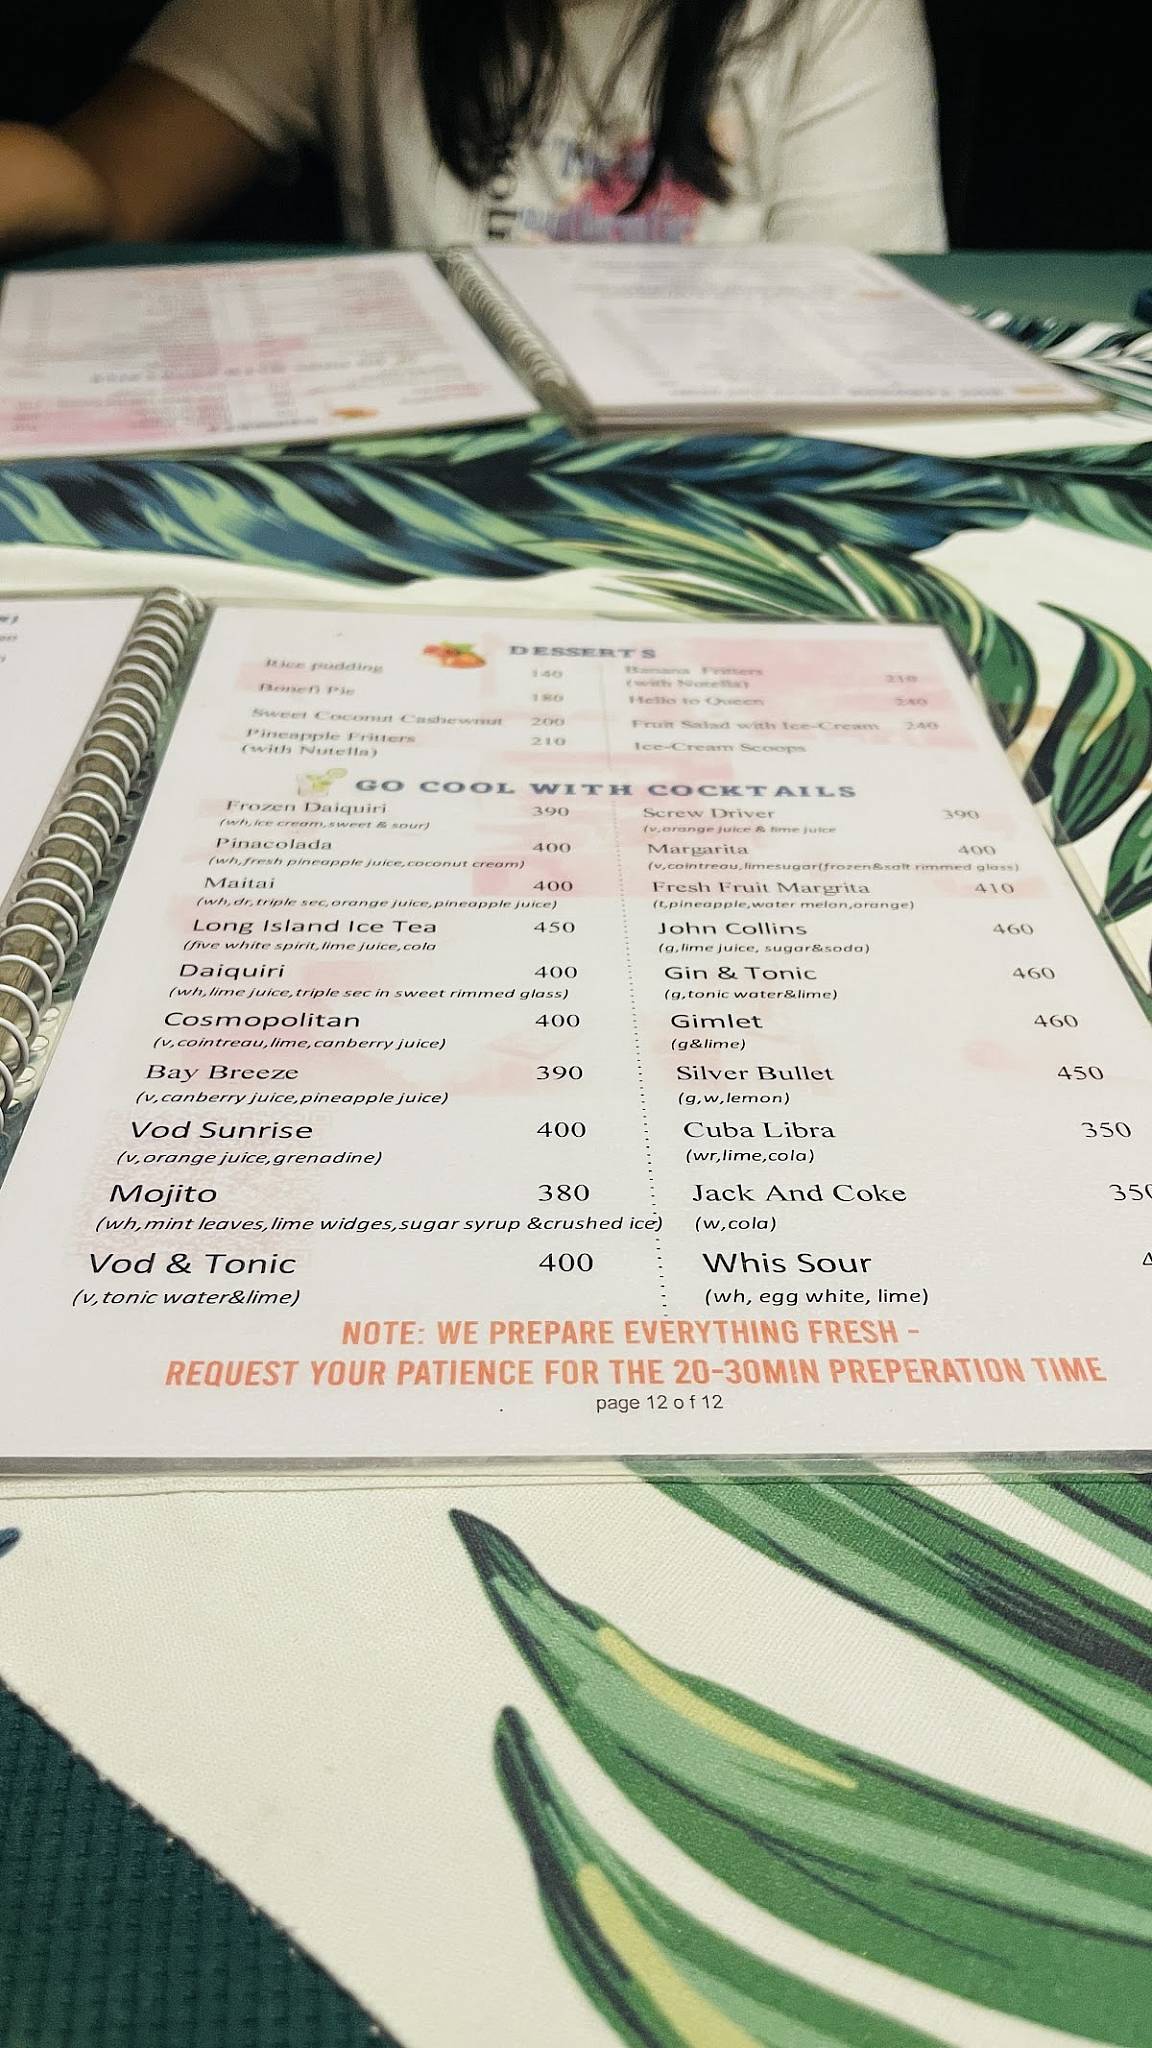 DESSERTS
Rice pudding 140
Banana Fritters
(with Nutella) 210
Bonefi Pie 180
Hello to Queen 240
Sweet Coconut Cashewnut 200
Fruit Salad with Ice-Cream 240
Pineapple Fritters 210
(with Nutella)
Ice-Cream Scoops
GO COOL WITH COCKTAILS
Frozen Daiquiri 390
(wh,ice cream,sweet & sour)
Pinacolada 400
(wh,fresh pineapple juice,coconut cream)
Maitai 400
(wh,dr,triple sec,orange juice,pineapple juice)
Long Island Ice Tea 450
(five white spirit,lime juice,cola
Daiquiri 400
(wh,lime juice,triple sec in sweet rimmed glass)
Cosmopolitan 400
(v,cointreau,lime,canberry juice)
Bay Breeze 390
(v,canberry juice,pineapple juice)
Vod Sunrise 400
(v,orange juice,grenadine)
Mojito 380
(wh,mint leaves,lime widges,sugar syrup &crushed ice)
Vod & Tonic 400
(v,tonic water&lime)
Screw Driver 390
(v,orange juice & lime juice
Margarita 400
(v,cointreau,limesugar(frozen&salt rimmed glass)
Fresh Fruit Margrita 410
(t,pineapple,water melon,orange)
John Collins 460
(g,lime juice, sugar&soda)
Gin & Tonic 460
(g,tonic water&lime)
Gimlet 460
(g&lime)
Silver Bullet 450
(g,w,lemon)
Cuba Libra 350
(wr,lime,cola)
Jack And Coke 350
(w,cola)
Whis Sour
(wh, egg white, lime)
NOTE: WE PREPARE EVERYTHING FRESH -
REQUEST YOUR PATIENCE FOR THE 20-30MIN PREPERATION TIME
page 12 of 12